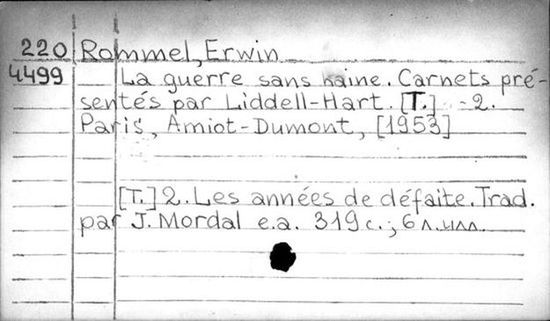 220 Rommel, Erwin
4499 La guerre sans haine. Carnets pré-
sentés par Liddell-Hart. [T.] -2.
Paris, Amiot-Dumont, [1953]
[T.] 2. Les années de défaite. Trad.
par J. Mordal e.a. 319 с.; 6 л. илл.